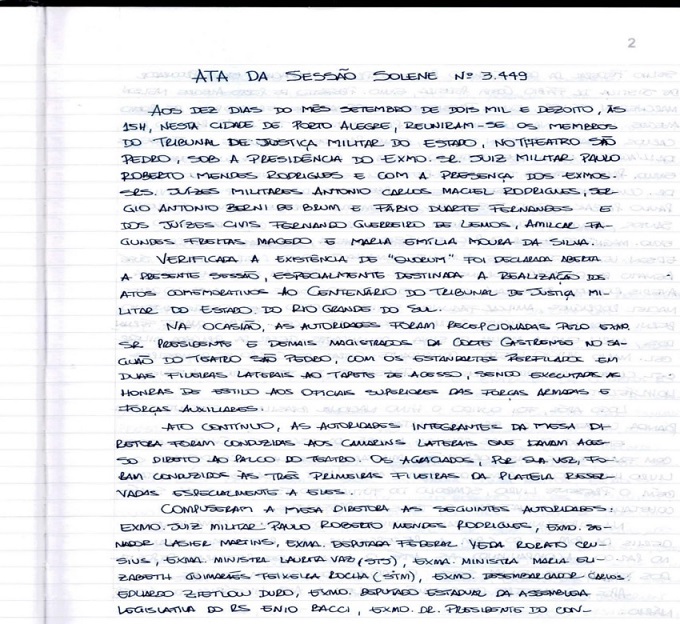 2
ATA DA SESSÃO SOLENE Nº 3.449
AOS DEZ DIAS DO MÊS SETEMBRO DE DOIS MIL E DEZOITO, ÀS
15H, NESTA CIDADE DE PORTO ALEGRE, REUNIRAM-SE OS MEMBROS
DO TRIBUNAL DE JUSTIÇA MILITAR DO ESTADO, NO THEATRO SÃO
PEDRO, SOB A PRESIDÊNCIA DO EXMO. SR. JUIZ MILITAR PAULO
ROBERTO MENDES RODRIGUES E COM A PRESENÇA DOS EXMOS.
SRS. JUÍZES MILITARES ANTONIO CARLOS MACIEL RODRIGUES, SER-
GIO ANTONIO BERNI DE BRUM E FÁBIO DUARTE FERNANDES E
DOS JUÍZES CIVIS FERNANDO GUERREIRO DE LEMOS, AMILCAR FA-
GUNDES FREITAS MACEDO E MARIA EMÍLIA MOURA DA SILVA.
VERIFICADA A EXISTÊNCIA DE "QUORUM" FOI DECLARADA ABERTA
A PRESENTE SESSÃO, ESPECIALMENTE DESTINADA A REALIZAÇÃO DE
ATOS COMEMORATIVOS AO CENTENÁRIO DO TRIBUNAL DE JUSTIÇA MI-
LITAR DO ESTADO DO RIO GRANDE DO SUL.
NA OCASIÃO, AS AUTORIDADES FORAM RECEPCIONADAS PELO EXMO.
SR. PRESIDENTE E DEMAIS MAGISTRADOS DA CORTE CASTRENSE NO SA-
GUÃO DO TEATRO SÃO PEDRO, COM OS ESTANDARTES PERFILADOS EM
DUAS FILEIRAS LATERAIS AO TAPETE DE ACESSO, SENDO EXECUTADAS AS
HONRAS DE ESTILO AOS OFICIAIS SUPERIORES DAS FORÇAS ARMADAS E
FORÇAS AUXILIARES.
ATO CONTÍNUO, AS AUTORIDADES INTEGRANTES DA MESA DI-
RETORA FORAM CONDUZIDAS AOS CAMARINS LATERAIS QUE DAVAM ACES-
SO DIRETO AO PALCO DO TEATRO. OS AGRACIADOS, POR SUA VEZ, FO-
RAM CONDUZIDOS ÀS TRÊS PRIMEIRAS FILEIRAS DA PLATEIA RESER-
VADAS ESPECIALMENTE A ELES.
COMPUSERAM A MESA DIRETORA AS SEGUINTES AUTORIDADES:
EXMO. JUIZ MILITAR PAULO ROBERTO MENDES RODRIGUES, EXMO. SE-
NADOR LASIER MARTINS, EXMA. DEPUTADA FEDERAL YEDA RORATO CRU-
SIUS, EXMA. MINISTRA LAURITA VAZ (STJ), EXMA. MINISTRA MARIA ELI-
ZABETH GUIMARÃES TEIXEIRA ROCHA (STM), EXMO. DESEMBARGADOR CARLOS
EDUARDO ZIETLOW DURO, EXMO. DEPUTADO ESTADUAL DA ASSEMBLEIA
LEGISLATIVA DO RS ENIO BACCI, EXMO. DR. PRESIDENTE DO CON-